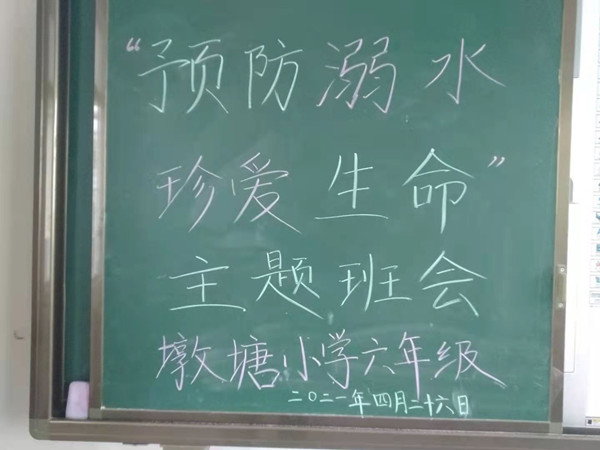 “预防溺水
珍爱生命”
主题班会
墩塘小学六年级
二〇二一年四月二十六日